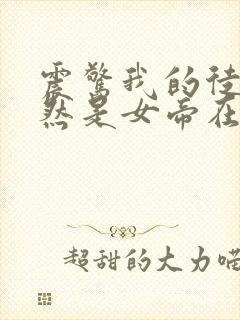 震驚我的徒
然是女帝在
超甜的大力喵